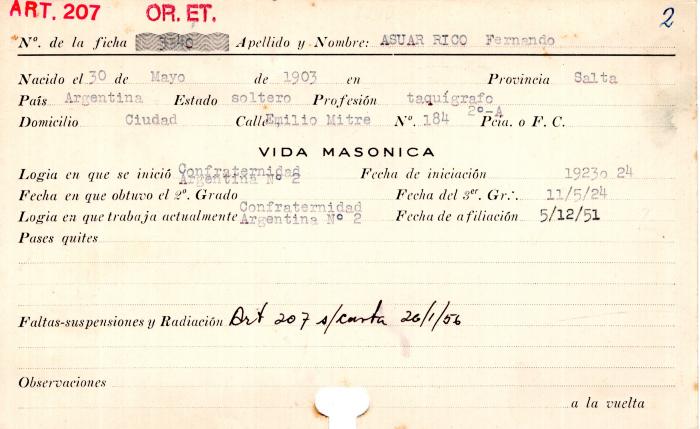 ART. 207 OR. ET. 2
Nº. de la ficha Apellido y Nombre: ASUAR RICO Fernando
Nacido el 30 de Mayo de 1903 en Provincia Salta
País Argentina Estado soltero Profesión taquígrafo
Domicilio Ciudad Calle Emilio Mitre Nº. 184 2º-A Pcia. o F. C.
VIDA MASONICA
Logia en que se inició Confraternidad Argentina Nº 2 Fecha de iniciación 1923o 24
Fecha en que obtuvo el 2º. Grado Fecha del 3er. Gr∴. 11/5/24
Logia en que trabaja actualmente Confraternidad Argentina Nº 2 Fecha de afiliación 5/12/51
Pases quites
Faltas-suspensiones y Radiación Art 207 s/carta 26/1/56
Observaciones
a la vuelta